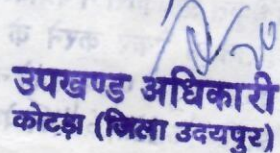 उपखण्ड अधिकारी
कोटड़ा (जिला उदयपुर)